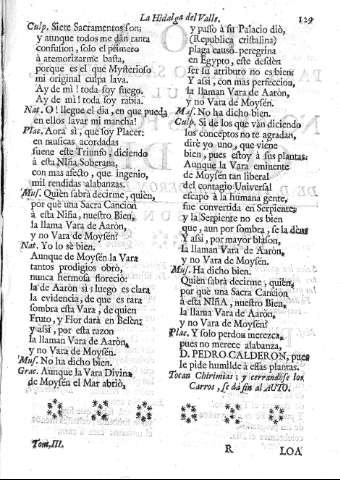 La Hidalga del Valle.
129
Culp. Siete Sacramentos son;
Y aunque todos me dàn tanta
confusion, solo el primero
à atemorizarme basta,
porque es el que Mysterioso
mi original culpa lava.
Ay de mi! toda soy fuego.
Ay de mi! toda soy rabia.
Nat. O! llegue el dia, en que pueda
en ellos lavar mi mancha!
Plac. Aora si, que soy Placer:
en musicas acordadas
suene este Triunfo, diciendo
à esta Niña Soberana,
con mas afecto, que ingenio,
mil rendidas alabanzas.
Mus. Quien sabrà decirme, quien,
por què una Sacra Cancion
à esta Niña, nuestro Bien,
la llama Vara de Aaròn,
y no Vara de Moysén?
Nat. Yo lo sè bien.
Aunque de Moysén la Vara
tantos prodigios obrò,
nunca hermosa floreciò:
la de Aaròn sì; luego es clara
la evidencia, de que es rara
sombra esta Vara, de quien
Fruto, y Flor darà en Belén;
y assi, por esta razon
la llaman Vara de Aaròn,
y no Vara de Moysén.
Mus. No ha dicho bien.
Grac. Aunque la Vara Divina
de Moysén el Mar abriò,
y pusso à su Palacio diò,
(Republica cristalina)
plaga causò peregrina
en Egypto, este desdèn
ser su atributo no es bien;
Y assi, con mas perfeccion,
la llaman Vara de Aaròn,
y no Vara de Moysén.
Mus. No ha dicho bien.
Culp. Si de los que vàn diciendo
los conceptos no te agradan,
dirè yo uno, que viene
bien, pues estoy à sus plantas:
Aunque la Vara eminente
de Moysén tan liberal
del contagio Universal
escapò à la humana gente,
fue convertida en Serpiente;
y la Serpiente no es bien
que, aun por sombra, se la dèn:
Y assi, por mayor blason,
la llaman Vara de Aaròn,
y no Vara de Moysén.
Mus. Ha dicho bien.
Quien sabrà decirme, quien,
por què una Sacra Cancion
à esta Niña, nuestro Bien,
la llama Vara de Aaròn,
y no Vara de Moysén?
Plac. Y solo perdon merezca,
pues no merece alabanza,
D. PEDRO CALDERON, pues
le pide humilde à essas plantas.
Tocan Chirimias; y cerrandose los
Carros, se dà fin al AUTO.
Tom. III.
R
LOA